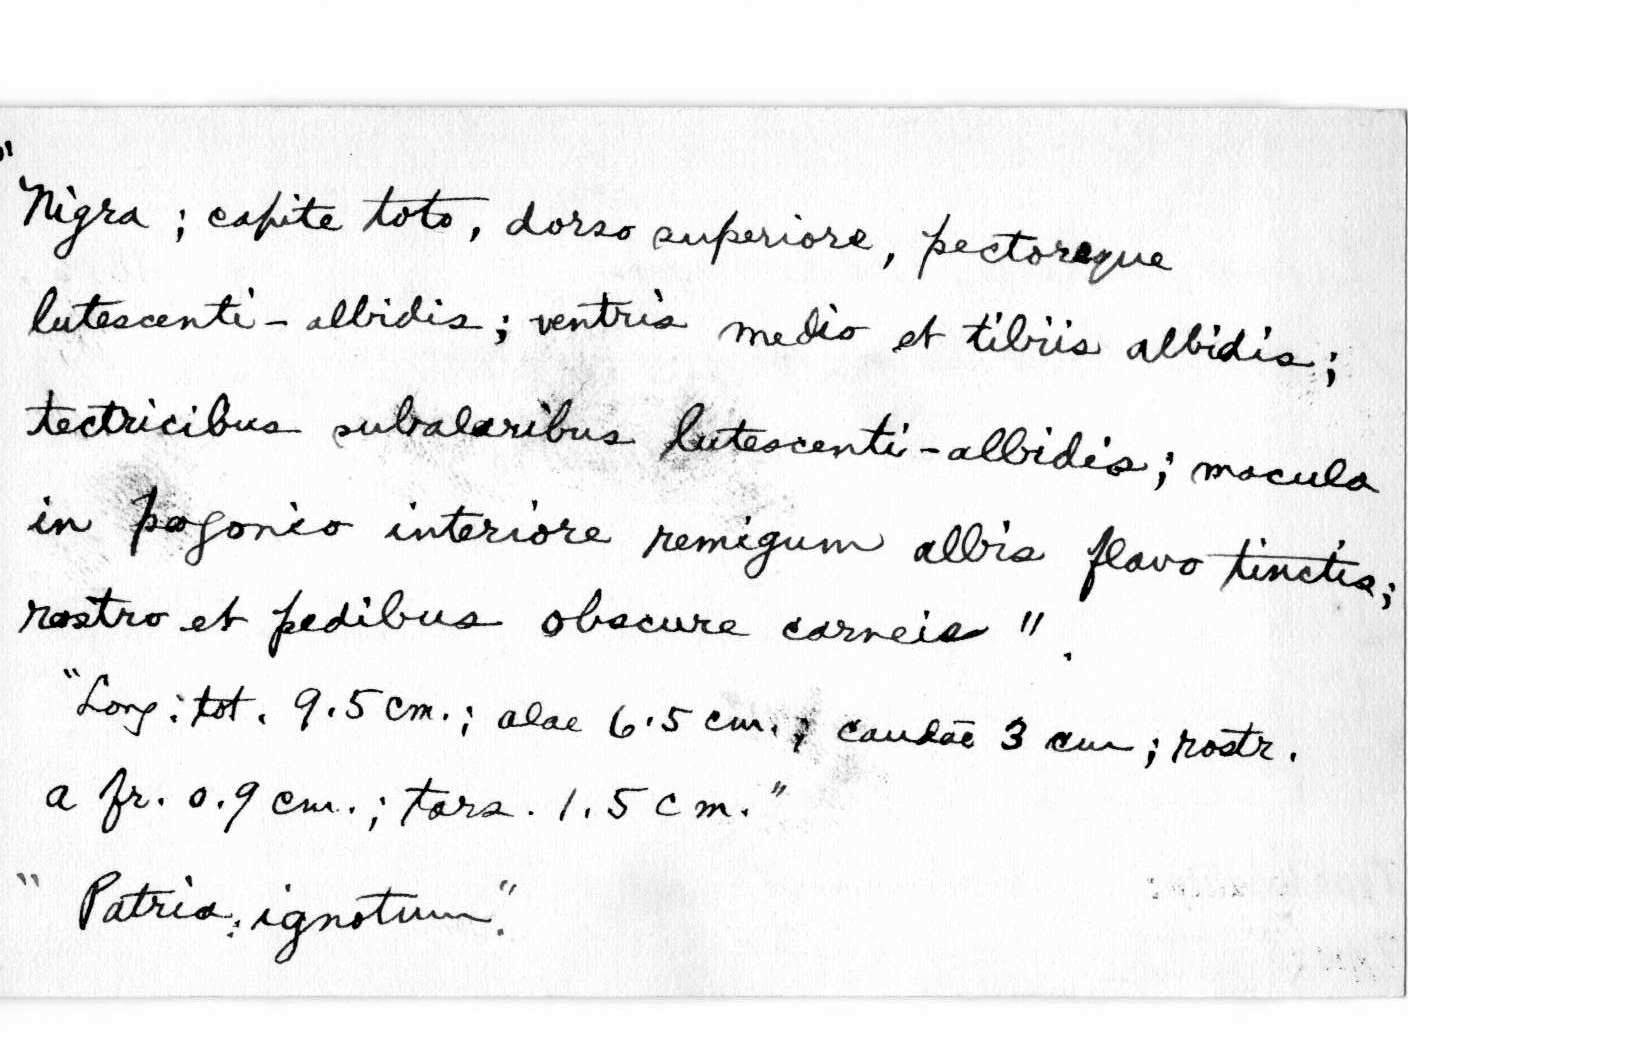 "Nigra ; capite toto, dorso superiore, pectoreque
lutescenti-albidis ; ventris medio et tibiis albidis ;
tectricibus subalaribus lutescenti-albidis ; macula
in pogonio interiore remigum albis flavo tinctis ;
rostro et pedibus obscure carneis ".
"Long : tot. 9.5 cm. ; alae 6.5 cm. ; caudae 3 cm ; rostr.
a fr. 0.9 cm. ; tars. 1.5 cm."
" Patria : ignotum".